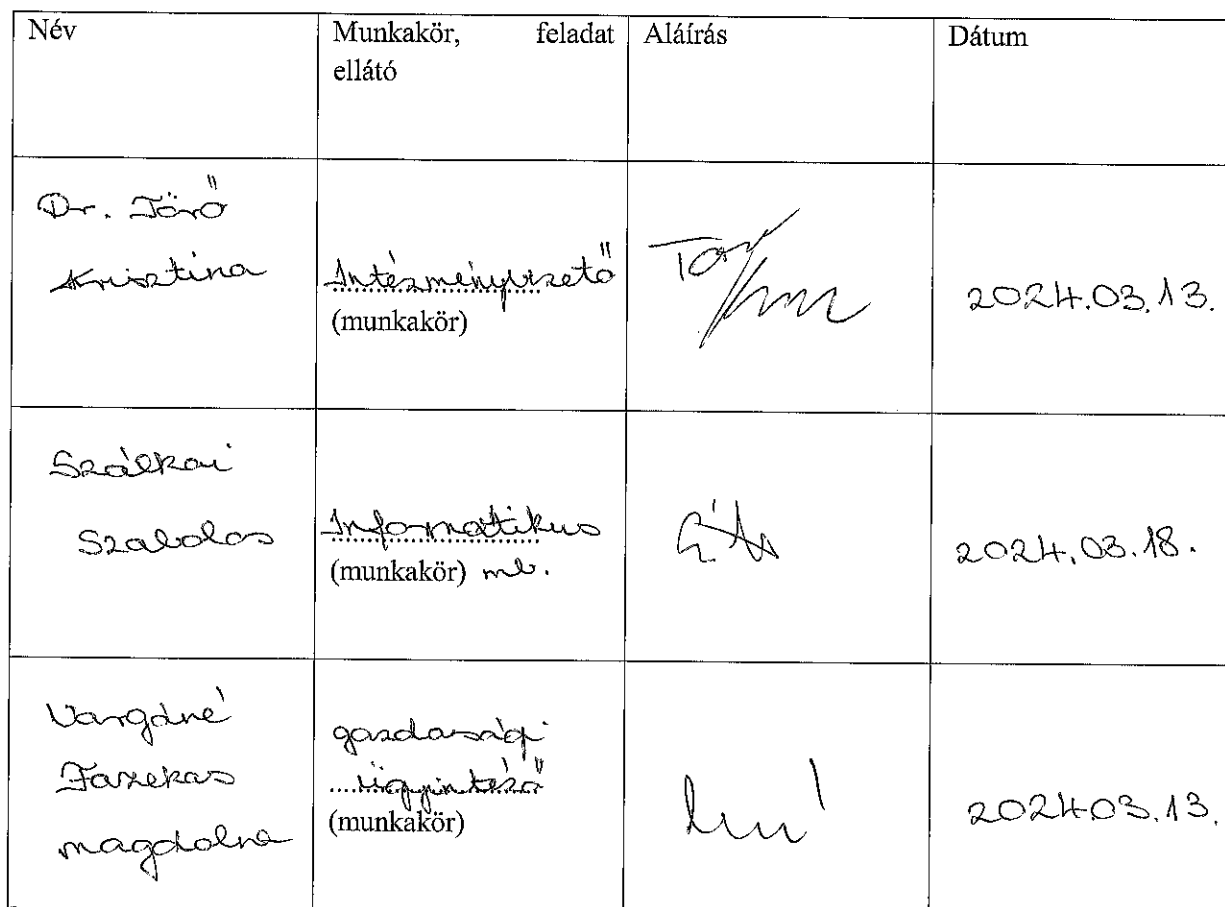 Név
Munkakör, feladat
ellátó
Aláírás
Dátum
Dr. Törő
Krisztina
Intézményvezető
(munkakör)
2024.03.13.
Szálkai
Szabolcs
Informatikus
(munkakör) mb.
2024.03.18.
Vargáné
Fazekas
Magdolna
gazdasági
ügyintéző
(munkakör)
2024.03.13.